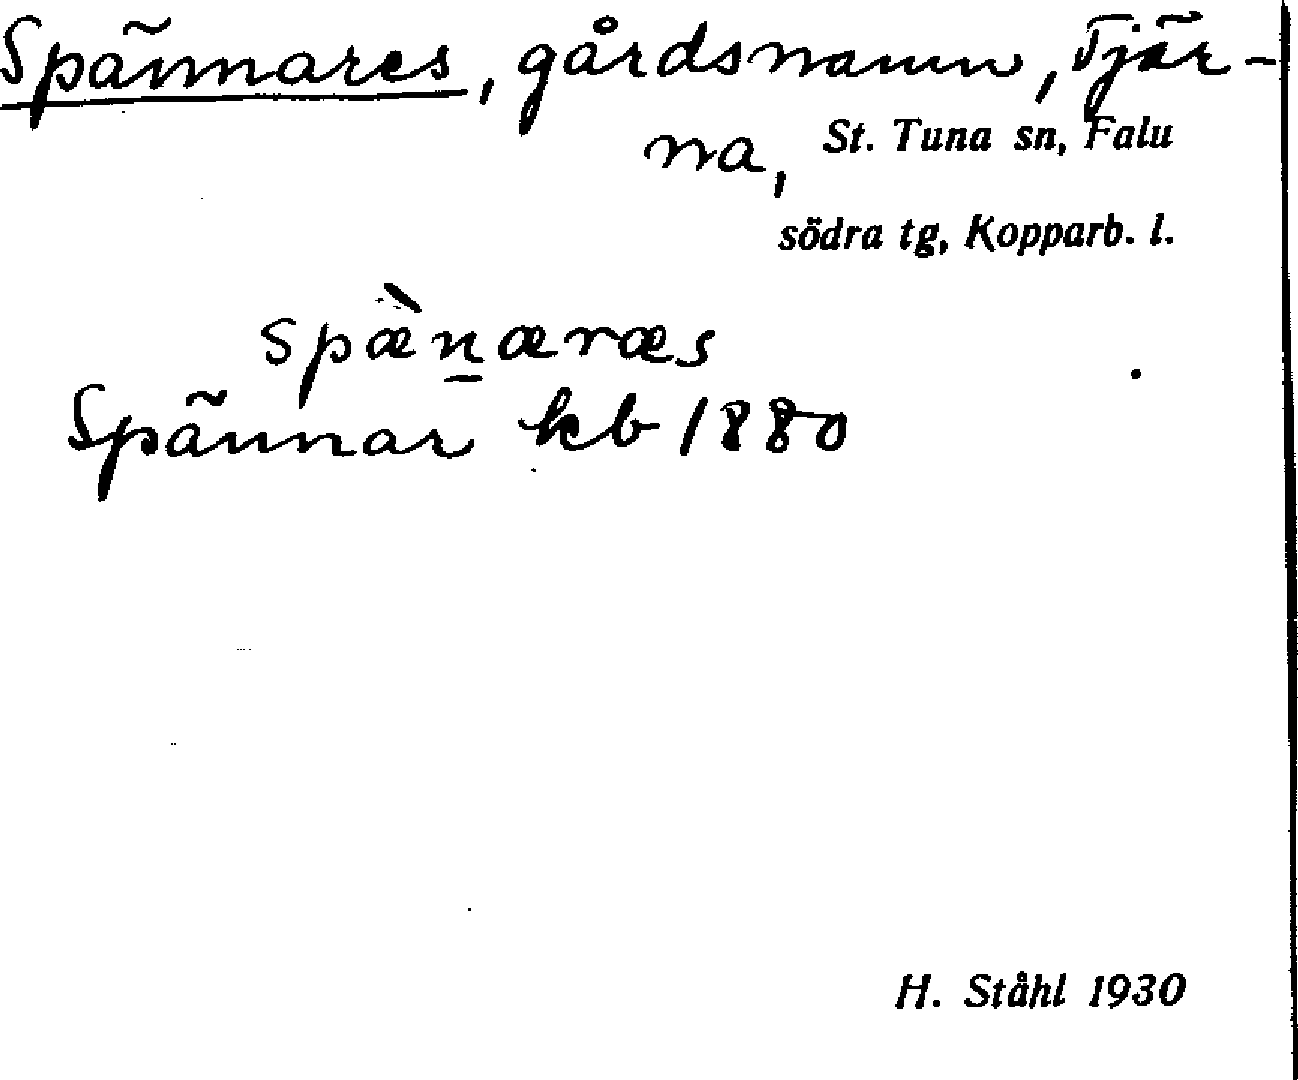 Spännares, gårdsnamn, Tjär-
na, St. Tuna sn, Falu
södra tg, Kopparb. l.
spæ̀n̲æræs
Spännar kb 1880
H. Ståhl 1930